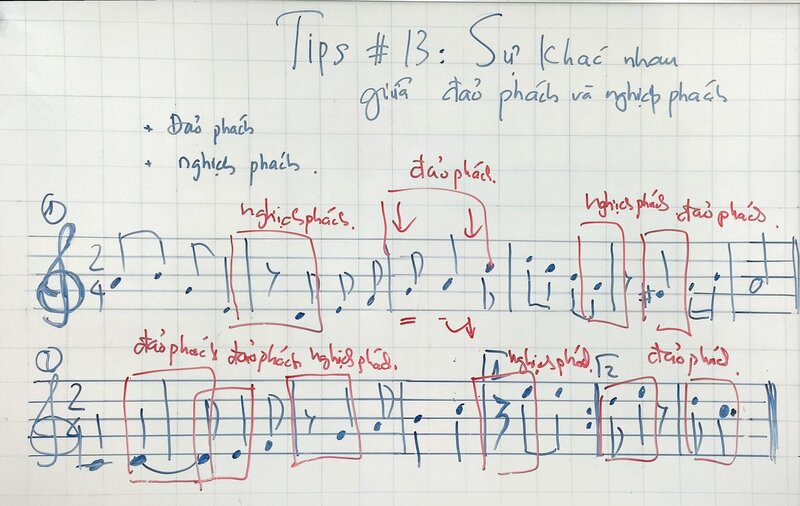 Tips # 13: Sự khác nhau
giữa đảo phách và nghịch phách
* Đảo phách
* nghịch phách.
đảo phách.
① nghịch phách. nghịch phách đảo phách.
2
4
② đảo phách đảo phách nghịch phách. 1 nghịch phách. 2 đảo phách.
2
4